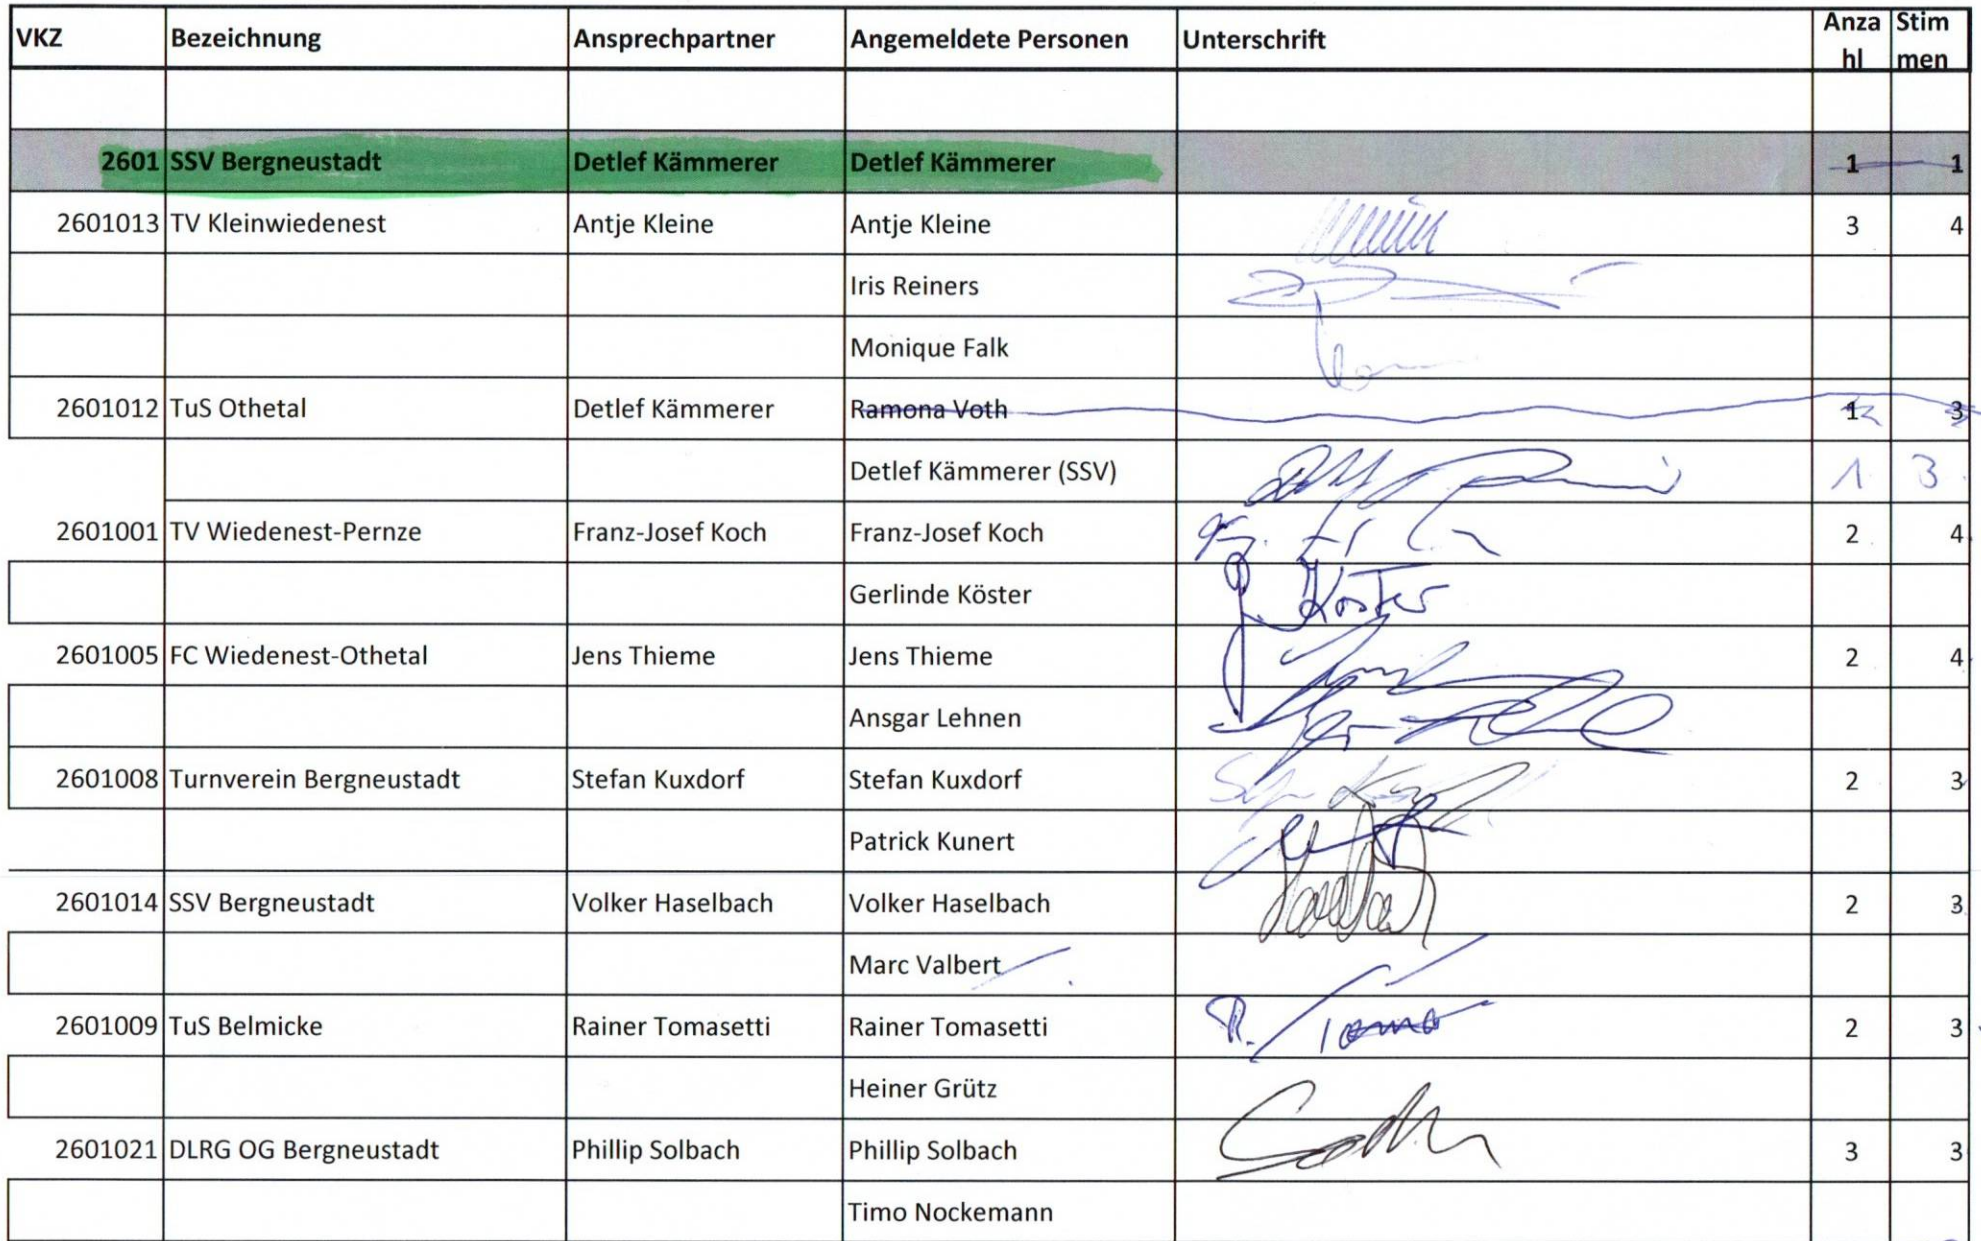 VKZ Bezeichnung Ansprechpartner Angemeldete Personen Unterschrift Anza hl Stim men
2601 SSV Bergneustadt Detlef Kämmerer Detlef Kämmerer 1 1
2601013 TV Kleinwiedenest Antje Kleine Antje Kleine 3 4
Iris Reiners
Monique Falk
2601012 TuS Othetal Detlef Kämmerer Ramona Voth 1 3
Detlef Kämmerer (SSV) 1 3
2601001 TV Wiedenest-Pernze Franz-Josef Koch Franz-Josef Koch 2 4
Gerlinde Köster Köster
2601005 FC Wiedenest-Othetal Jens Thieme Jens Thieme 2 4
Ansgar Lehnen
2601008 Turnverein Bergneustadt Stefan Kuxdorf Stefan Kuxdorf 2 3
Patrick Kunert
2601014 SSV Bergneustadt Volker Haselbach Volker Haselbach 2 3
Marc Valbert
2601009 TuS Belmicke Rainer Tomasetti Rainer Tomasetti 2 3
Heiner Grütz
2601021 DLRG OG Bergneustadt Phillip Solbach Phillip Solbach 3 3
Timo Nockemann